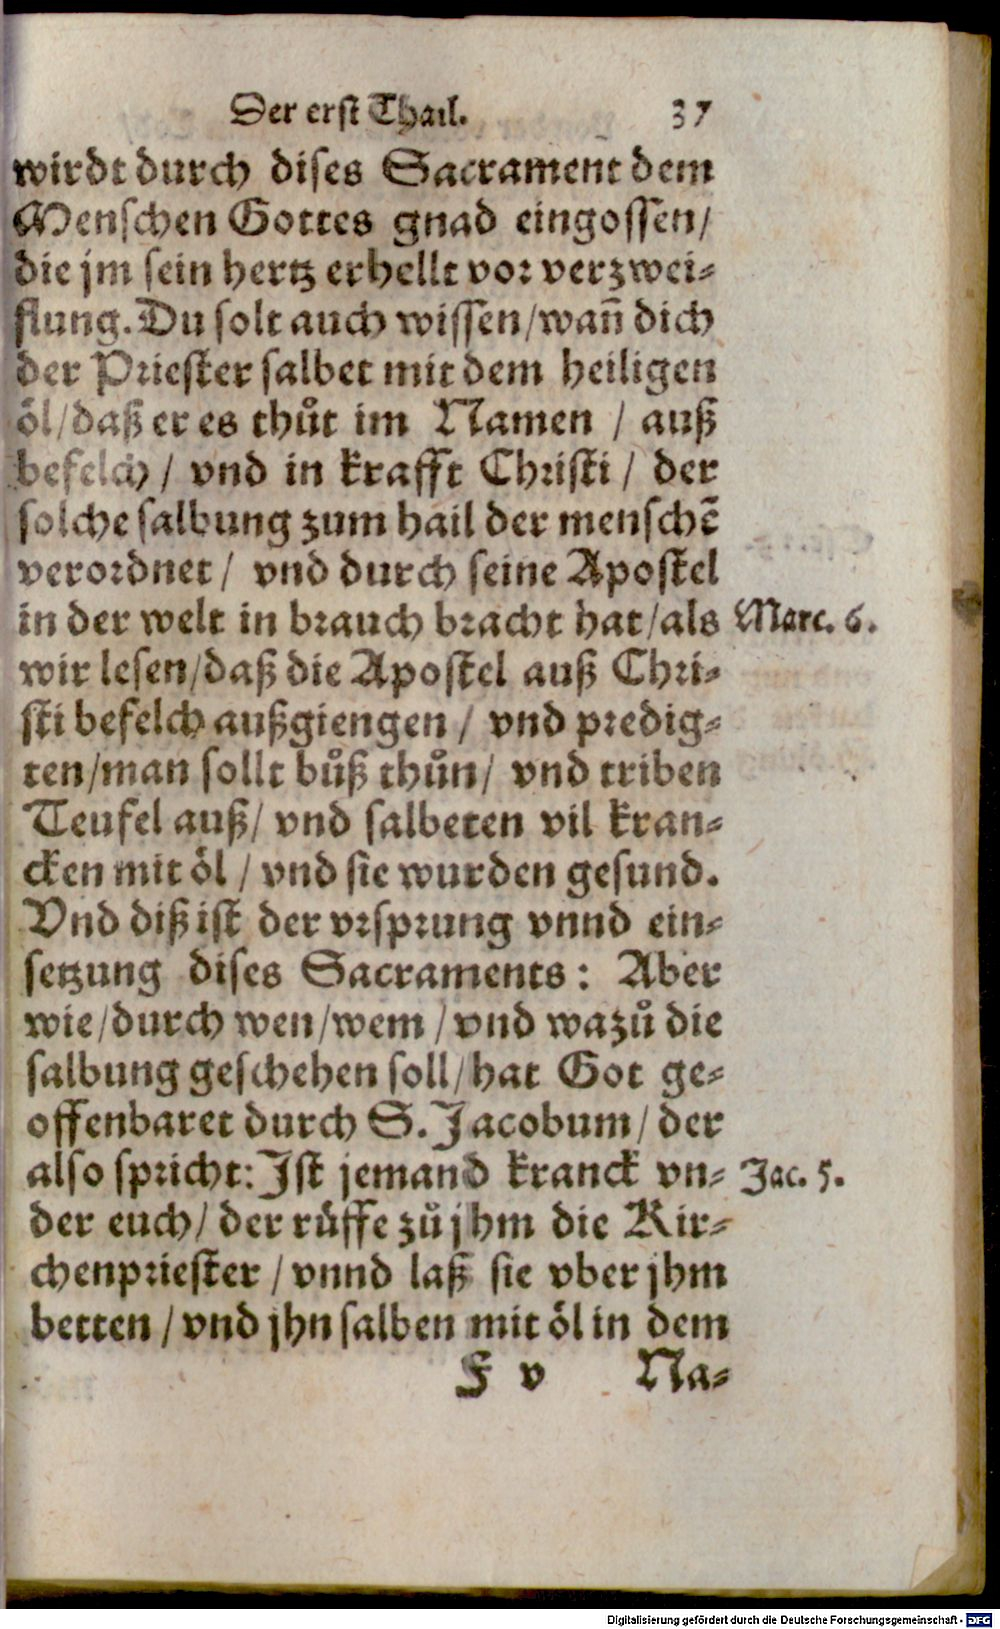 Der erst Thail. 37
wirdt durch dises Sacrament dem
Menschen Gottes gnad eingossen/
die jm sein hertz erhellt vor verzwei-
flung. Du solt auch wissen/wañ dich
der Priester salbet mit dem heiligen
öl/daß er es thůt im Namen / auß
befelch / vnd in krafft Christi / der
solche salbung zum hail der menschẽ
verordnet / vnd durch seine Apostel
in der welt in brauch bracht hat/als Marc. 6.
wir lesen/daß die Apostel auß Chri-
sti befelch außgiengen / vnd predig-
ten/man sollt bůß thůn/ vnd triben
Teufel auß/ vnd salbeten vil kran-
cken mit öl / vnd sie wurden gesund.
Vnd diß ist der vrsprung vnnd ein-
setzung dises Sacraments: Aber
wie/durch wen/wem / vnd wazů die
salbung geschehen soll/hat Got ge-
offenbaret durch S. Jacobum/ der
also spricht: Ist jemand kranck vn- Jac. 5.
der euch/ der rüffe zů jhm die Kir-
chenpriester / vnnd laß sie vber jhm
betten / vnd jhn salben mit öl in dem
F v Na-
Digitalisierung gefördert durch die Deutsche Forschungsgemeinschaft - DFG